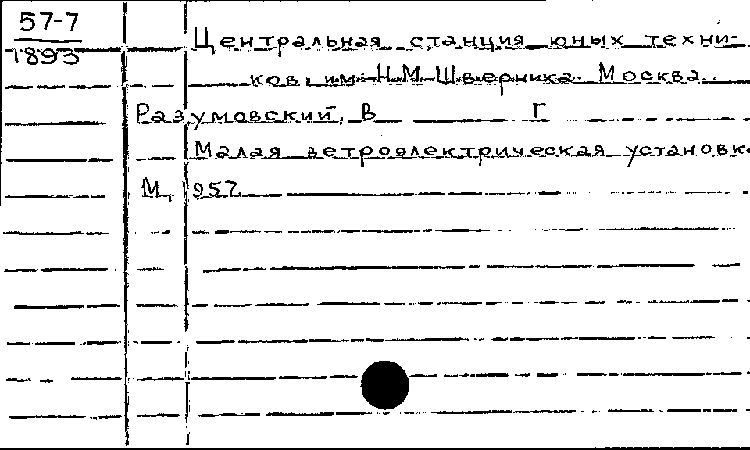 57-7
1893
Центральная станция юных техни-
ков, им. Н.М. Шверника. Москва.
Разумовский, В Г
Малая ветроэлектрическая установка
М, 957